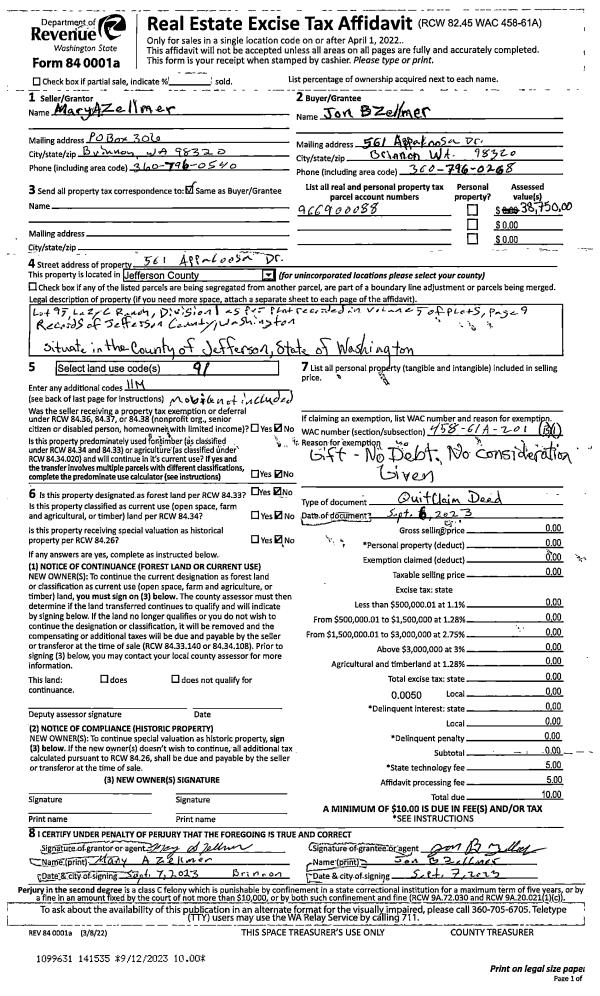 Department of
Revenue
Washington State
Form 84 0001a
Real Estate Excise Tax Affidavit (RCW 82.45 WAC 458-61A)
Only for sales in a single location code on or after April 1, 2022..
This affidavit will not be accepted unless all areas on all pages are fully and accurately completed.
This form is your receipt when stamped by cashier. Please type or print.
Check box if partial sale, indicate % sold.
List percentage of ownership acquired next to each name.
1 Seller/Grantor
Name Mary A Zellmer
Mailing address PO Box 306
City/state/zip Brinnon, WA 98320
Phone (including area code) 360-796-0540
2 Buyer/Grantee
Name Jon B Zellmer
Mailing address 561 Appaloosa Dr.
City/state/zip Brinnon WA. 98320
Phone (including area code) 360-796-0268
3 Send all property tax correspondence to: Same as Buyer/Grantee
Name
Mailing address
City/state/zip
List all real and personal property tax
parcel account numbers
966900088
Personal
property?
Assessed
value(s)
$ 38,750.00
$ 0.00
$ 0.00
4 Street address of property 561 Appaloosa Dr.
This property is located in Jefferson County (for unincorporated locations please select your county)
Check box if any of the listed parcels are being segregated from another parcel, are part of a boundary line adjustment or parcels being merged.
Legal description of property (if you need more space, attach a separate sheet to each page of the affidavit).
Lot 95, Lazy C Ranch, Division 1 as per Plat recorded in Volume 5 of Plots, Page 9
Records of Jefferson County, Washington
Situate in the County of Jefferson, State of Washington
5 Select land use code(s) 91
Enter any additional codes 11M
(see back of last page for instructions) Mobile not included
Was the seller receiving a property tax exemption or deferral
under RCW 84.36, 84.37, or 84.38 (nonprofit org., senior
citizen or disabled person, homeowner with limited income)? Yes No
Is this property predominately used for timber (as classified
under RCW 84.34 and 84.33) or agriculture (as classified under
RCW 84.34.020) and will continue in it's current use? If yes and
the transfer involves multiple parcels with different classifications,
complete the predominate use calculator (see instructions) Yes No
6 Is this property designated as forest land per RCW 84.33? Yes No
Is this property classified as current use (open space, farm
and agricultural, or timber) land per RCW 84.34? Yes No
Is this property receiving special valuation as historical
property per RCW 84.26? Yes No
If any answers are yes, complete as instructed below.
(1) NOTICE OF CONTINUANCE (FOREST LAND OR CURRENT USE)
NEW OWNER(S): To continue the current designation as forest land
or classification as current use (open space, farm and agriculture, or
timber) land, you must sign on (3) below. The county assessor must then
determine if the land transferred continues to qualify and will indicate
by signing below. If the land no longer qualifies or you do not wish to
continue the designation or classification, it will be removed and the
compensating or additional taxes will be due and payable by the seller
or transferor at the time of sale (RCW 84.33.140 or 84.34.108). Prior to
signing (3) below, you may contact your local county assessor for more
information.
This land: does does not qualify for
continuance.
Deputy assessor signature Date
(2) NOTICE OF COMPLIANCE (HISTORIC PROPERTY)
NEW OWNER(S): To continue special valuation as historic property, sign
(3) below. If the new owner(s) doesn't wish to continue, all additional tax
calculated pursuant to RCW 84.26, shall be due and payable by the seller
or transferor at the time of sale.
(3) NEW OWNER(S) SIGNATURE
Signature Signature
Print name Print name
7 List all personal property (tangible and intangible) included in selling
price.
If claiming an exemption, list WAC number and reason for exemption.
WAC number (section/subsection) 458-61A-201 (B)(1)
Reason for exemption
Gift - No Debt, No Consideration
Given
Type of document QuitClaim Deed
Date of document Sept. 6, 2023
Gross selling price 0.00
*Personal property (deduct) 0.00
Exemption claimed (deduct) 0.00
Taxable selling price 0.00
Excise tax: state
Less than $500,000.01 at 1.1% 0.00
From $500,000.01 to $1,500,000 at 1.28% 0.00
From $1,500,000.01 to $3,000,000 at 2.75% 0.00
Above $3,000,000 at 3% 0.00
Agricultural and timberland at 1.28% 0.00
Total excise tax: state 0.00
0.0050 Local 0.00
*Delinquent interest: state 0.00
Local 0.00
*Delinquent penalty 0.00
Subtotal 0.00
*State technology fee 5.00
Affidavit processing fee 5.00
Total due 10.00
A MINIMUM OF $10.00 IS DUE IN FEE(S) AND/OR TAX
*SEE INSTRUCTIONS
8 I CERTIFY UNDER PENALTY OF PERJURY THAT THE FOREGOING IS TRUE AND CORRECT
Signature of grantor or agent Mary A Zellmer
Name (print) Mary A Zellmer
Date & city of signing Sept. 7, 2023 Brinnon
Signature of grantee or agent Jon B Zellmer
Name (print) Jon B Zellmer
Date & city of signing Sept. 7, 2023
Perjury in the second degree is a class C felony which is punishable by confinement in a state correctional institution for a maximum term of five years, or by
a fine in an amount fixed by the court of not more than $10,000, or by both such confinement and fine (RCW 9A.72.030 and RCW 9A.20.021(1)(c)).
To ask about the availability of this publication in an alternate format for the visually impaired, please call 360-705-6705. Teletype
(TTY) users may use the WA Relay Service by calling 711.
REV 84 0001a (3/8/22) THIS SPACE TREASURER'S USE ONLY COUNTY TREASURER
1099631 141535 *9/12/2023 10.00*
Print on legal size paper
Page 1 of